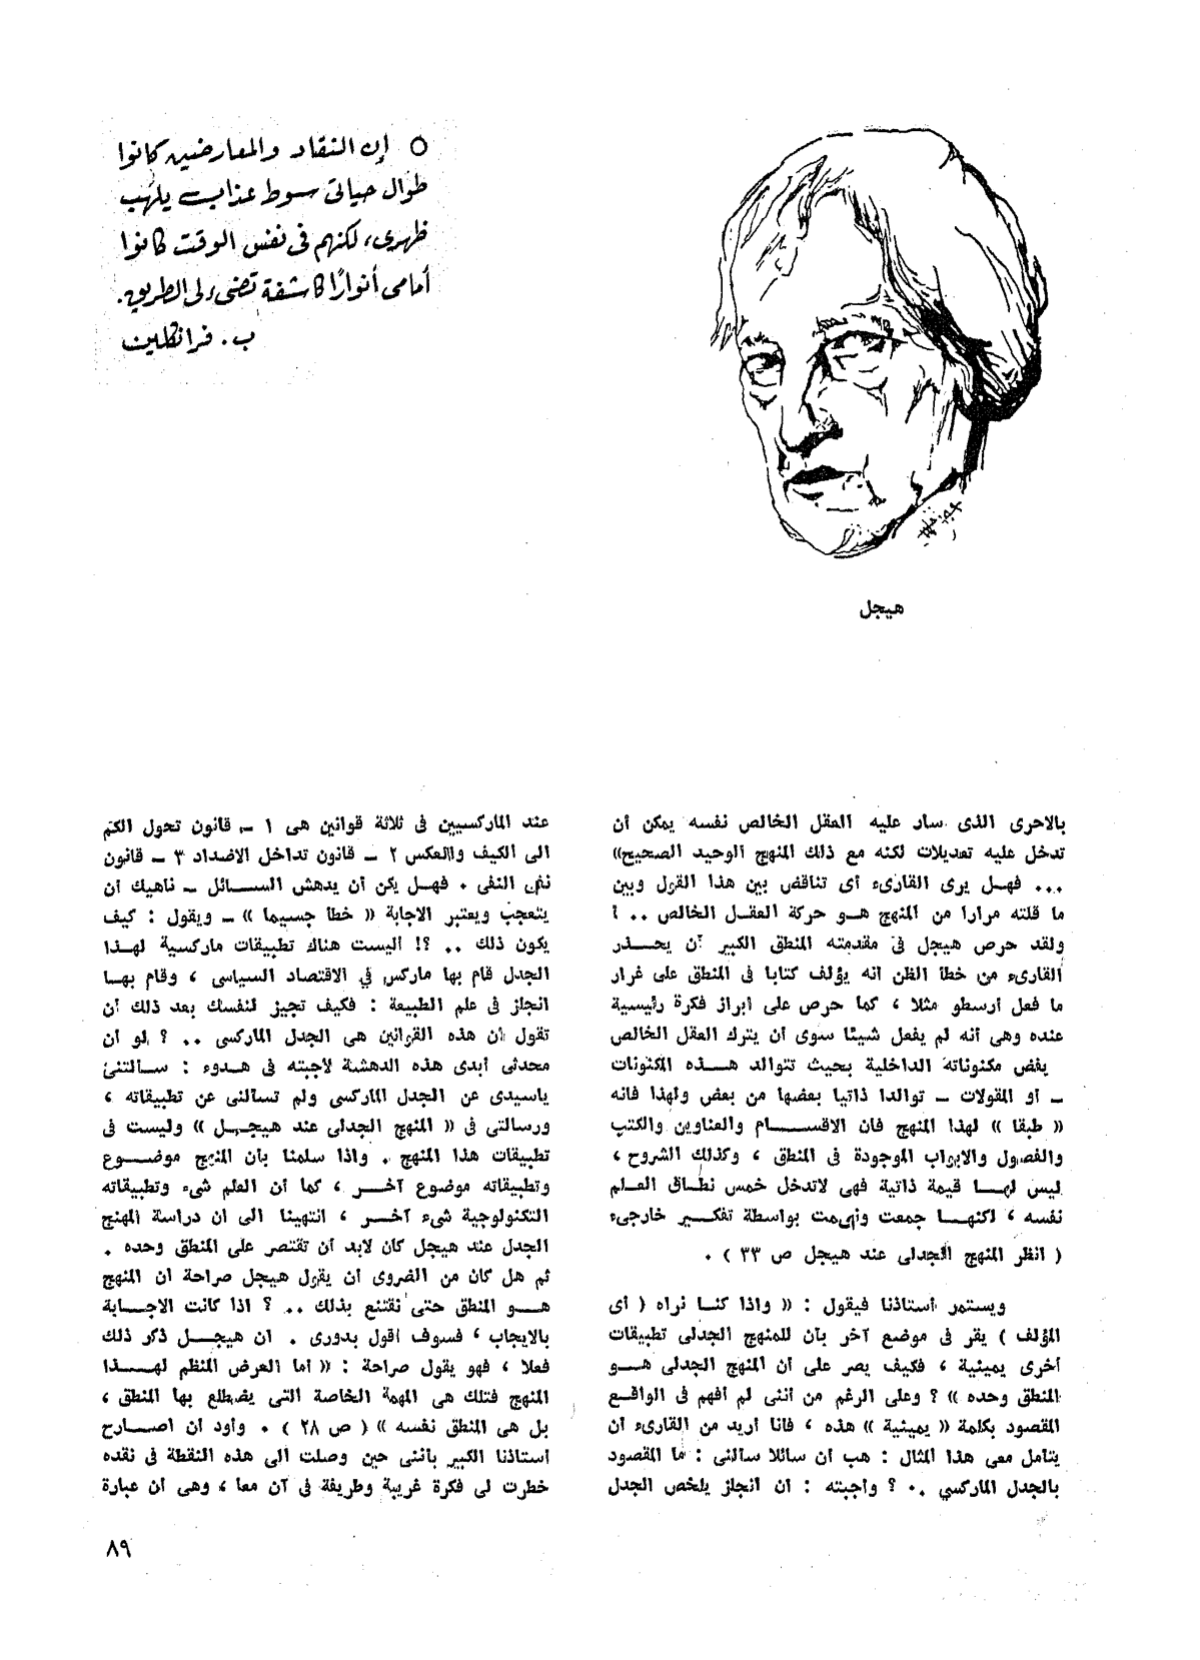 ○ إن النقاد والمعارضين كانوا
طوال حياتى سوط عذاب يلهب
ظهرى، لكنهم فى نفس الوقت كانوا
أمامى أنوارًا كاشفة تضىء لى الطريق.
ب. فرانكلين
هيجل
بالاحرى الذى سار عليه العقل الخالص نفسه يمكن أن
تدخل عليه تعديلات لكنه مع ذلك المنهج الوحيد الصحيح»
... فهل يرى القارىء أى تناقض بين هذا القول وبين
ما قلته مرارا من المنهج هو حركة العقل الخالص .. !
ولقد حرص هيجل فى مقدمته المنطق الكبير أن يحذر
القارىء من خطأ الظن انه يؤلف كتابا فى المنطق على غرار
ما فعل أرسطو مثلا ، كما حرص على ابراز فكرة رئيسية
عنده وهى أنه لم يفعل شيئا سوى أن يترك العقل الخالص
يفض مكنوناته الداخلية بحيث تتوالد هذه المكنونات
ـ أو المقولات ـ توالدا ذاتيا بعضها من بعض ولهذا فانه
« طبقا » لهذا المنهج فان الاقسام والعناوين والكتب
والفصول والابواب الموجودة فى المنطق ، وكذلك الشروح ،
ليس لها قيمة ذاتية فهى لاتدخل خمس نطاق العلم
نفسه ، لكنها جمعت ونهمت بواسطة تفكير خارجىء
( انظر المنهج الجدلى عند هيجل ص ٣٣ ) .
ويستمر أستاذنا فيقول : « واذا كنا نراه ( أى
المؤلف ) يقر فى موضع آخر بأن للمنهج الجدلى تطبيقات
أخرى يمينية ، فكيف يصر على ان المنهج الجدلى هو
المنطق وحده » ؟ وعلى الرغم من أننى لم أفهم فى الواقع
المقصود بكلمة « يمينية » هذه ، فأنا أريد من القارىء أن
يتأمل معى هذا المثال : هب أن سائلا سألنى : ما المقصود
بالجدل الماركسي .. ؟ وأجبته : ان انجلز يلخص الجدل
عند الماركسيين فى ثلاثة قوانين هى ١ ـ قانون تحول الكم
الى الكيف والعكس ٢ ـ قانون تداخل الاضداد ٣ ـ قانون
نفى النفى . فهل يكن أن يدهش السائل ـ ناهيك أن
يتعجب ويعتبر الاجابة « خطأ جسيما » ـ ويقول : كيف
يكون ذلك .. ؟! اليست هناك تطبيقات ماركسية لهذا
الجدل قام بها ماركس في الاقتصاد السياسى ، وقام بها
انجلز فى علم الطبيعة : فكيف تجيز لنفسك بعد ذلك أن
تقول أن هذه القوانين هى الجدل الماركسى .. ؟ لو أن
محدثى أبدى هذه الدهشة لأجبته فى هدوء : سألتنى
ياسيدى عن الجدل الماركسى ولم تسألنى عن تطبيقاته ،
ورسالتى فى « المنهج الجدلى عند هيجل » وليست فى
تطبيقات هذا المنهج . واذا سلمنا بأن المنهج موضوع
وتطبيقاته موضوع آخر ، كما أن العلم شىء وتطبيقاته
التكنولوجية شىء آخر ، انتهينا الى أن دراسة المهنج
الجدل عند هيجل كان لابد أن تقتصر على المنطق وحده .
ثم هل كان من الضروى أن يقول هيجل صراحة أن المنهج
هو المنطق حتى نقتنع بذلك .. ؟ اذا كانت الاجابة
بالايجاب ، فسوف أقول بدورى . أن هيجل ذكر ذلك
فعلا ، فهو يقول صراحة : « أما العرض المنظم لهذا
المنهج فتلك هى المهمة الخاصة التى يضطلع بها المنطق ،
بل هى المنطق نفسه » ( ص ٢٨ ) . وأود أن أصارح
أستاذنا الكبير بأننى حين وصلت الى هذه النقطة فى نقده
خطرت لى فكرة غريبة وطريفة فى آن معا ، وهى أن عبارة
٨٩